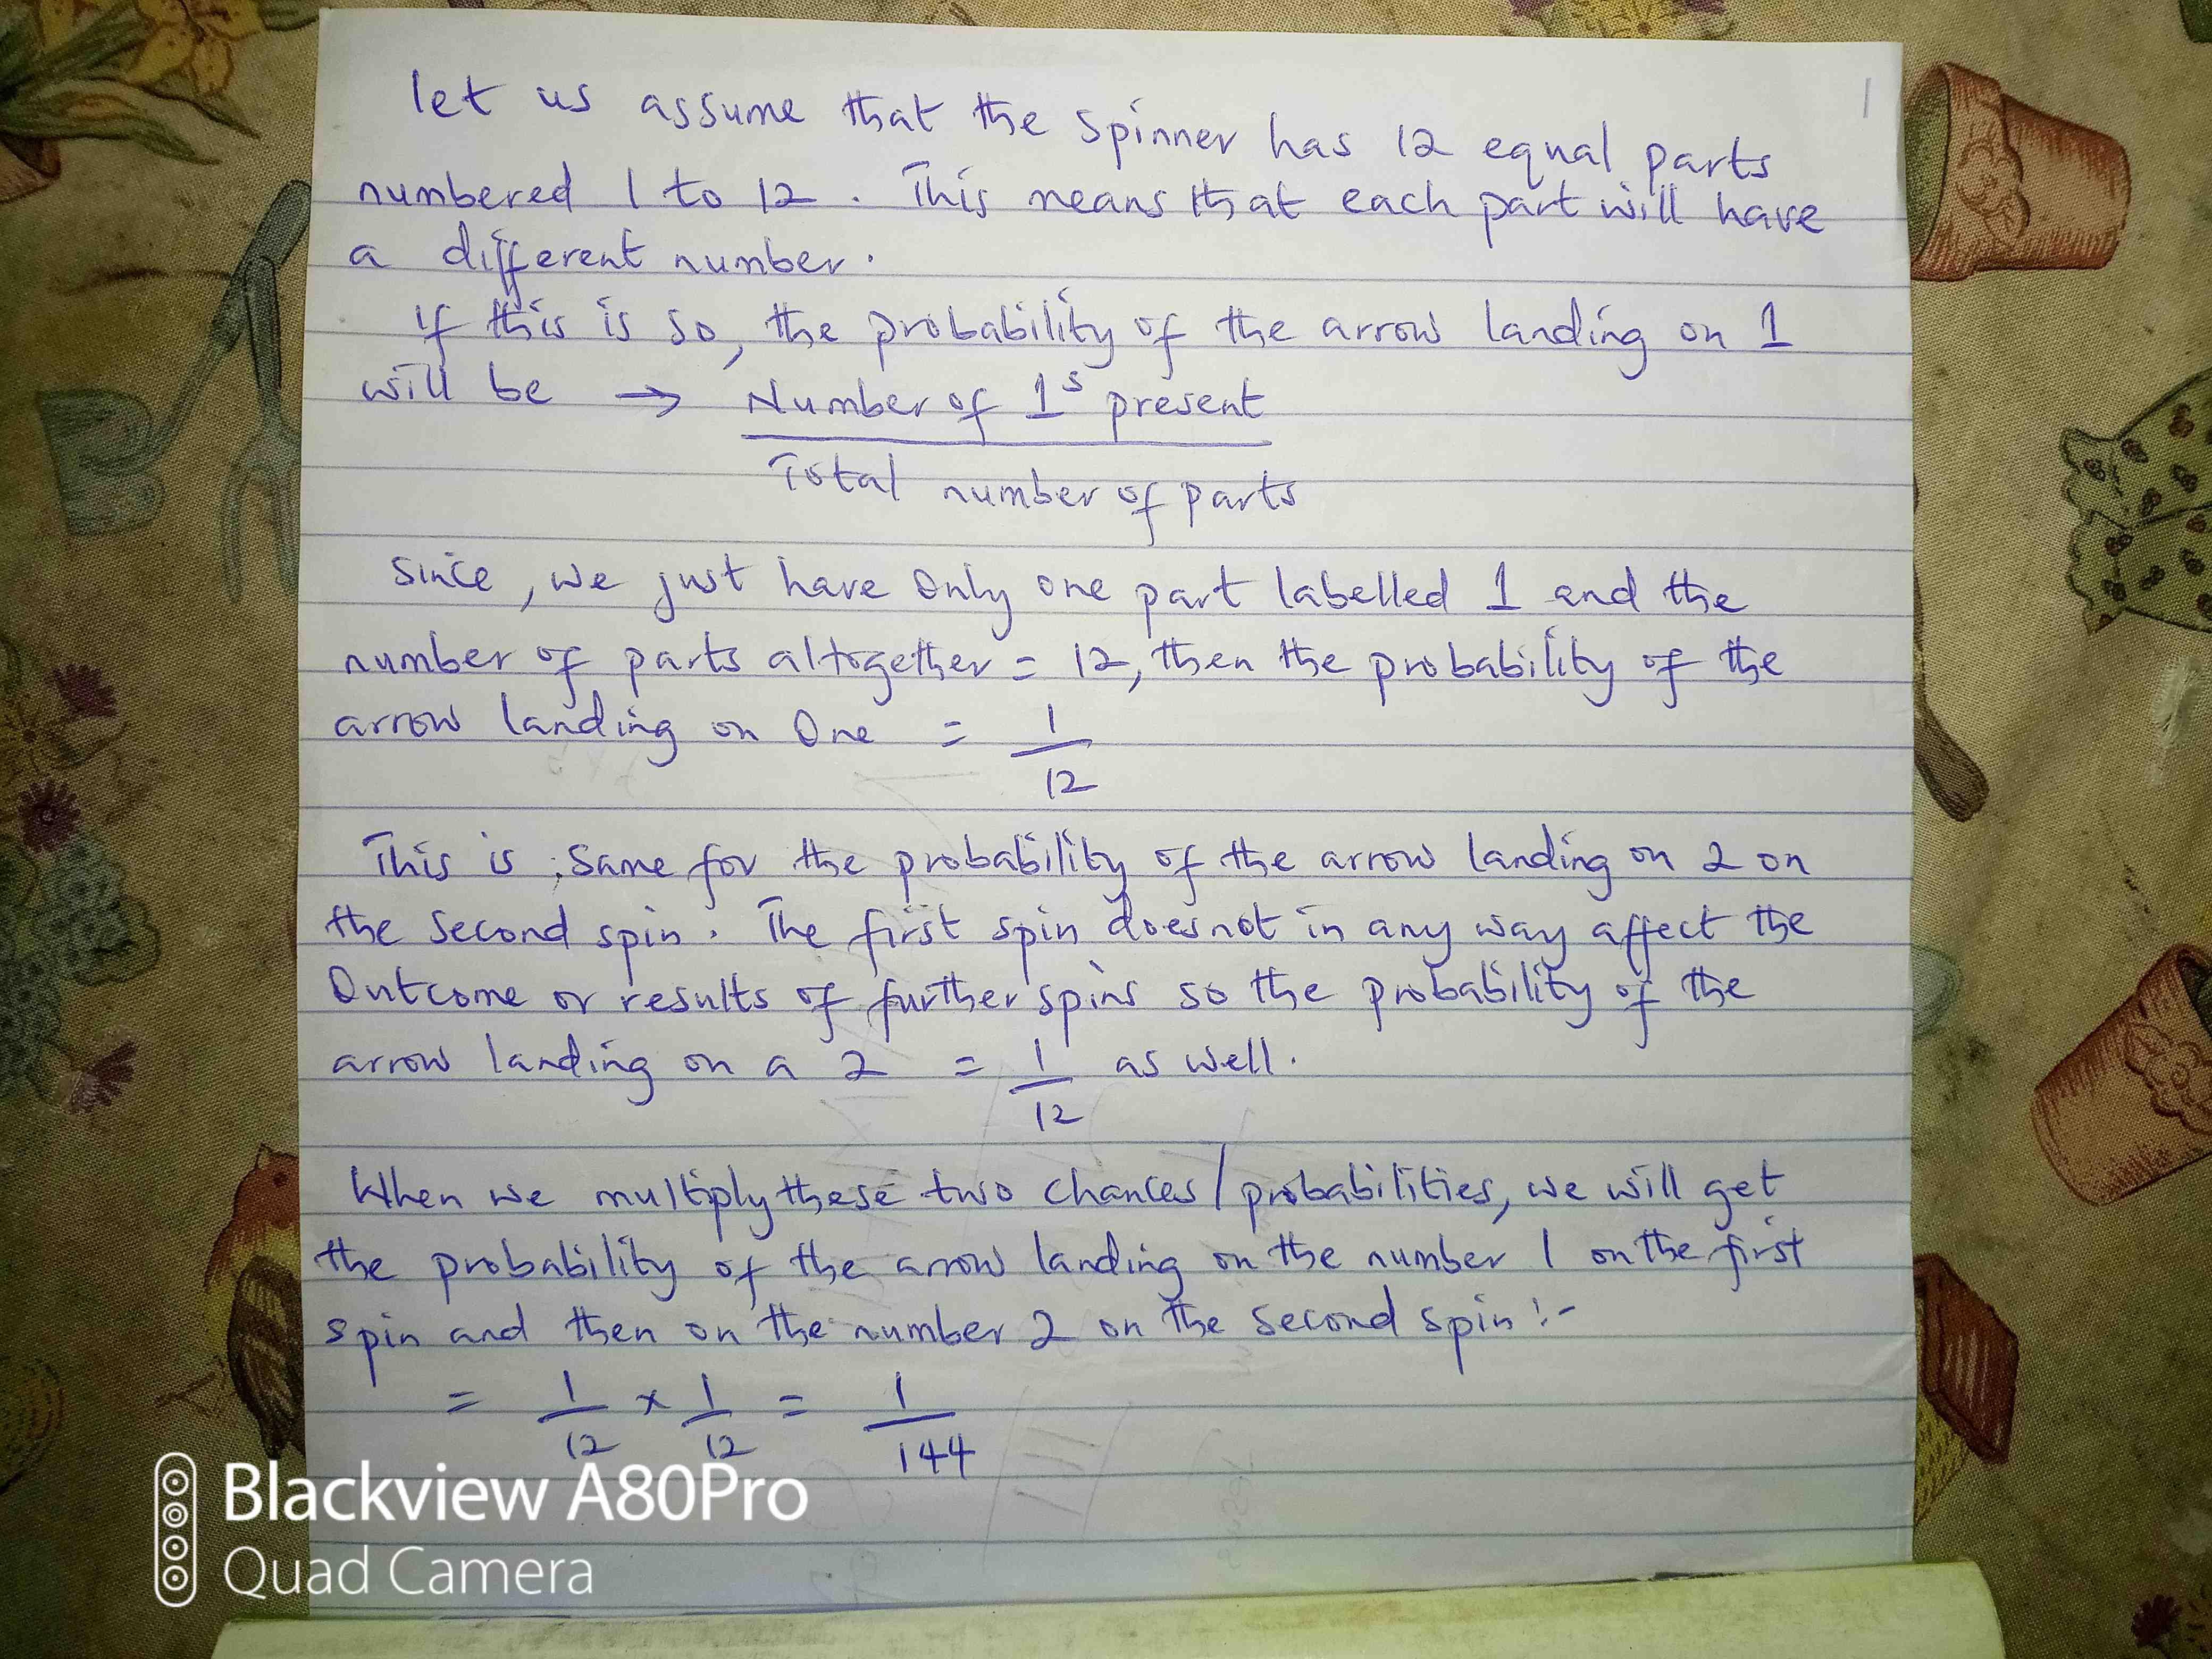 1
let us assume that the spinner has 12 equal parts
numbered 1 to 12. This means that each part will have
a different number.
If this is so, the probability of the arrow landing on 1
will be → Number of 1s present
Total number of parts
Since, we just have only one part labelled 1 and the
number of parts altogether = 12, then the probability of the
arrow landing on One = 1/12
This is same for the probability of the arrow landing on 2 on
the second spin. The first spin does not in any way affect the
Outcome or results of further spins so the probability of the
arrow landing on a 2 = 1/12 as well.
When we multiply these two chances/probabilities, we will get
the probability of the arrow landing on the number 1 on the first
spin and then on the number 2 on the second spin:-
= 1/12 x 1/12 = 1/144
Blackview A80Pro
Quad Camera